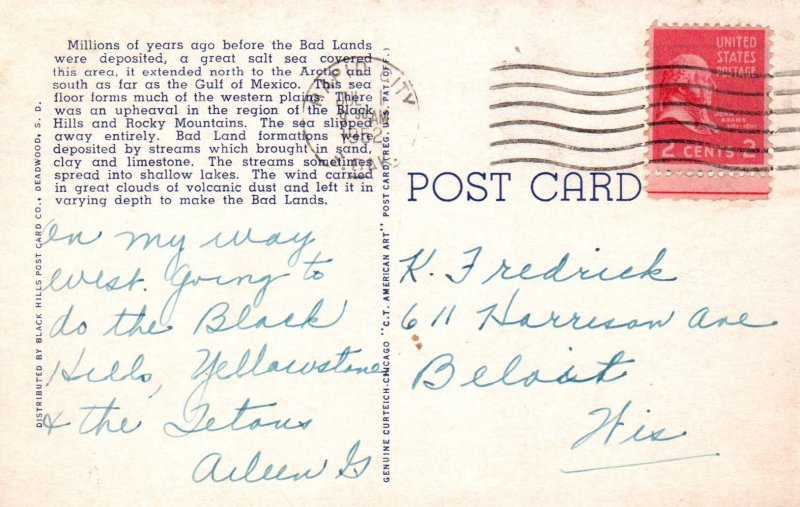 Millions of years ago before the Bad Lands
were deposited, a great salt sea covered
this area, it extended north to the Arctic and
south as far as the Gulf of Mexico. This sea
floor forms much of the western plains. There
was an upheaval in the region of the Black
Hills and Rocky Mountains. The sea slipped
away entirely. Bad Land formations were
deposited by streams which brought in sand,
clay and limestone. The streams sometimes
spread into shallow lakes. The wind carried
in great clouds of volcanic dust and left it in
varying depth to make the Bad Lands.
On my way
west. Going to
do the Black
Hills, Yellowstone
& the Tetons
Aileen G
DISTRIBUTED BY BLACK HILLS POST CARD CO., DEADWOOD, S. D.
GENUINE CURTEICH-CHICAGO "C.T. AMERICAN ART" POST CARD (REG. U.S. PAT. OFF.)
RAPID CITY
AM
1952
S. DAK.
UNITED
STATES
POSTAGE
JOHN
ADAMS
2 CENTS 2
POST CARD
K. Fredrick
611 Harrison Ave
Beloit
Wis